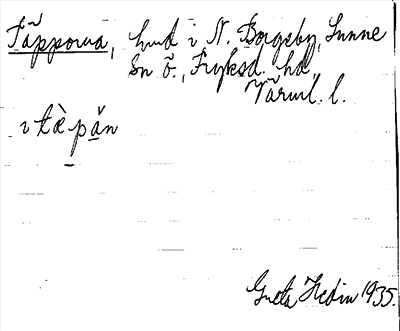 Täpporna, hmd i N. Borgeby, Sunne
Sn ö., Fryksd. hd,
Värml. l.
ı tæ̀ pǎn
Greta Hedin 1935.